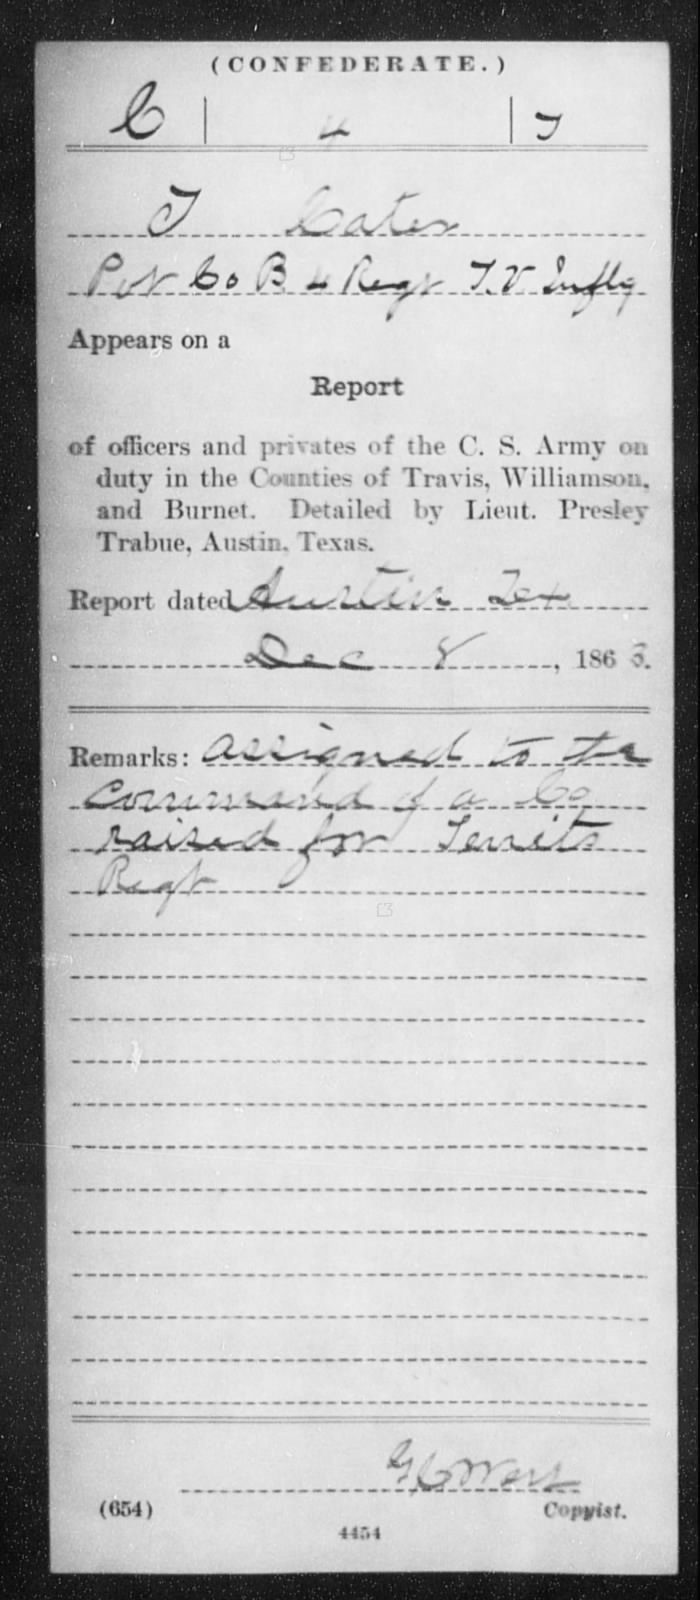 (CONFEDERATE.)
C | 4 | T
T Cater
Pvt Co B. 4 Regt T.V. Inftry
Appears on a
Report
of officers and privates of the C. S. Army on
duty in the Counties of Travis, Williamson,
and Burnet. Detailed by Lieut. Presley
Trabue, Austin, Texas.
Report dated Austin Tex.
Dec 8, 1863.
Remarks: assigned to the
command of a Co
raised for Terrets
Regt
Copyist.
(654)
4454